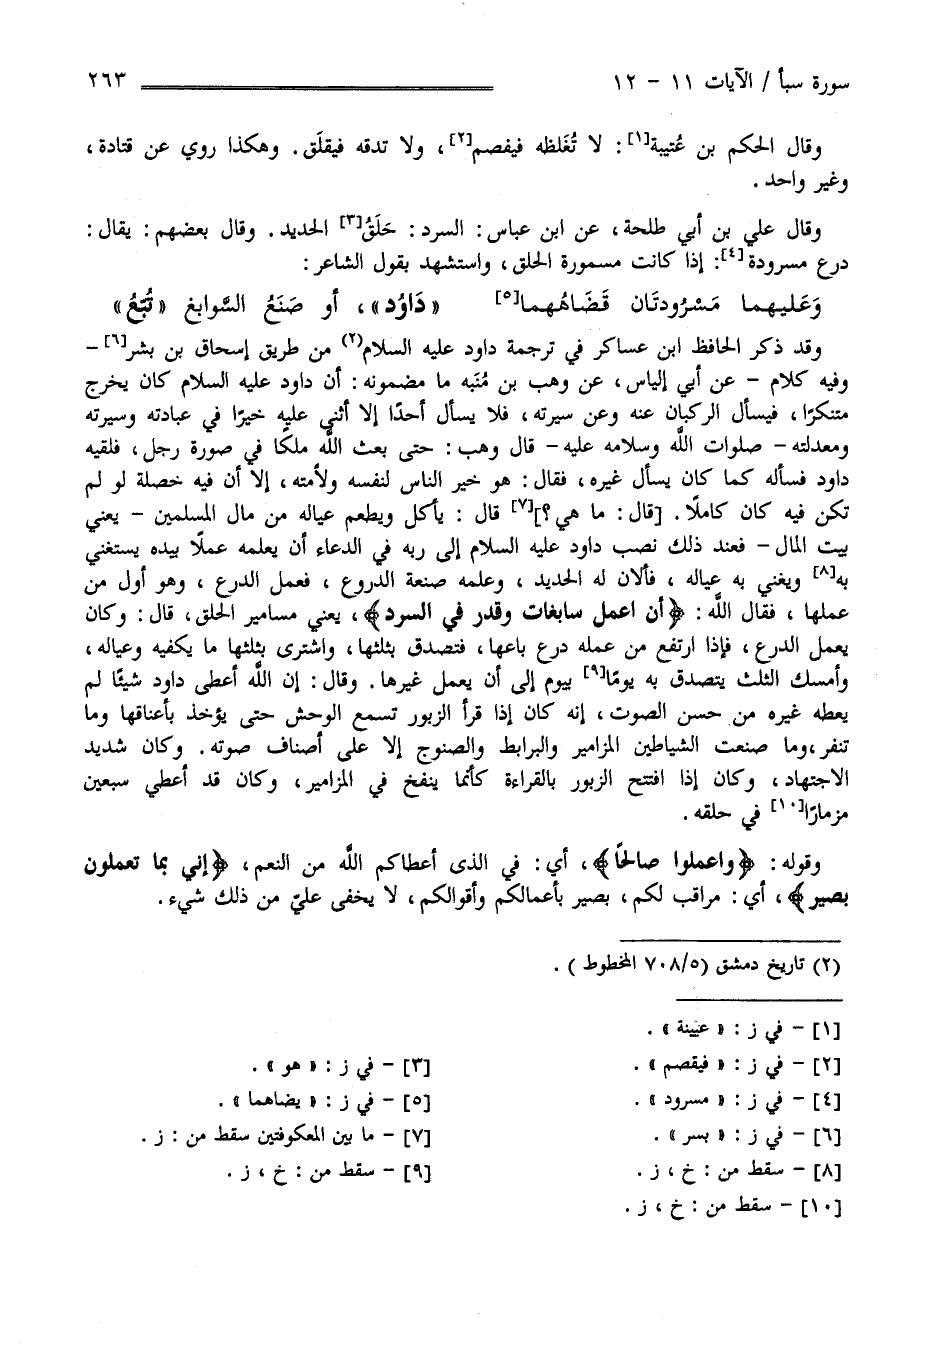 سورة سبأ / الآيات ١١ - ١٢ ٢٦٣
وقال الحكم بن عُتيبة[١]: لا تُغَلظه فيفصم[٢]، ولا تدقه فيقلَق. وهكذا روي عن قتادة،
وغير واحد.
وقال علي بن أبي طلحة، عن ابن عباس: السرد: حَلَقُ[٣] الحديد. وقال بعضهم: يقال:
درع مسرودة[٤]: إذا كانت مسمورة الحلق، واستشهد بقول الشاعر:
وَعَليهما مَسْرُودتَان قَضَاهُهما[٥] «دَاوُد»، أو صَنَعُ السَّوابغ «تُبّعُ»
وقد ذكر الحافظ ابن عساكر في ترجمة داود عليه السلام(٢) من طريق إسحاق بن بشر[٦] -
وفيه كلام - عن أبي إلياس، عن وهب بن مُنَبه ما مضمونه: أن داود عليه السلام كان يخرج
متنكرًا، فيسأل الركبان عنه وعن سيرته، فلا يسأل أحدًا إلا أثنى عليه خيرًا في عبادته وسيرته
ومعدلته - صلوات اللَّه وسلامه عليه - قال وهب: حتى بعث اللَّه ملكًا في صورة رجل، فلقيه
داود فسأله كما كان يسأل غيره، فقال: هو خير الناس لنفسه ولأمته، إلا أن فيه خصلة لو لم
تكن فيه كان كاملًا. [قال: ما هي؟][٧] قال: يأكل ويطعم عياله من مال المسلمين - يعني
بيت المال - فعند ذلك نصب داود عليه السلام إلى ربه في الدعاء أن يعلمه عملًا بيده يستغني
به[٨] ويغني به عياله، فألان له الحديد، وعلمه صنعة الدروع، فعمل الدرع، وهو أول من
عملها، فقال اللَّه: ﴿أن اعمل سابغات وقدر في السرد﴾، يعني مسامير الحلق، قال: وكان
يعمل الدرع، فإذا ارتفع من عمله درع باعها، فتصدق بثلثها، واشترى بثلثها ما يكفيه وعياله،
وأمسك الثلث يتصدق به يومًا[٩] بيوم إلى أن يعمل غيرها. وقال: إن اللَّه أعطى داود شيئًا لم
يعطه غيره من حسن الصوت، إنه كان إذا قرأ الزبور تسمع الوحش حتى يؤخذ بأعناقها وما
تنفر،وما صنعت الشياطين المزامير والبرابط والصنوج إلا على أصناف صوته. وكان شديد
الاجتهاد، وكان إذا افتتح الزبور بالقراءة كأنما ينفخ في المزامير، وكان قد أعطي سبعين
مزمارًا[١٠] في حلقه.
وقوله: ﴿واعملوا صالحًا﴾، أي: في الذى أعطاكم اللَّه من النعم، ﴿إني بما تعملون
بصير﴾، أي: مراقب لكم، بصير بأعمالكم وأقوالكم، لا يخفى عليّ من ذلك شيء.
(٢) تاريخ دمشق (٥/٧٠٨ المخطوط).
[١] - في ز: «عيينة».
[٢] - في ز: «فيقصم». [٣] - في ز: «هو».
[٤] - في ز: «مسرود». [٥] - في ز: «يضاهما».
[٦] - في ز: «بسر». [٧] - ما بين المعكوفتين سقط من: ز.
[٨] - سقط من: خ، ز. [٩] - سقط من: خ، ز.
[١٠] - سقط من: خ، ز.